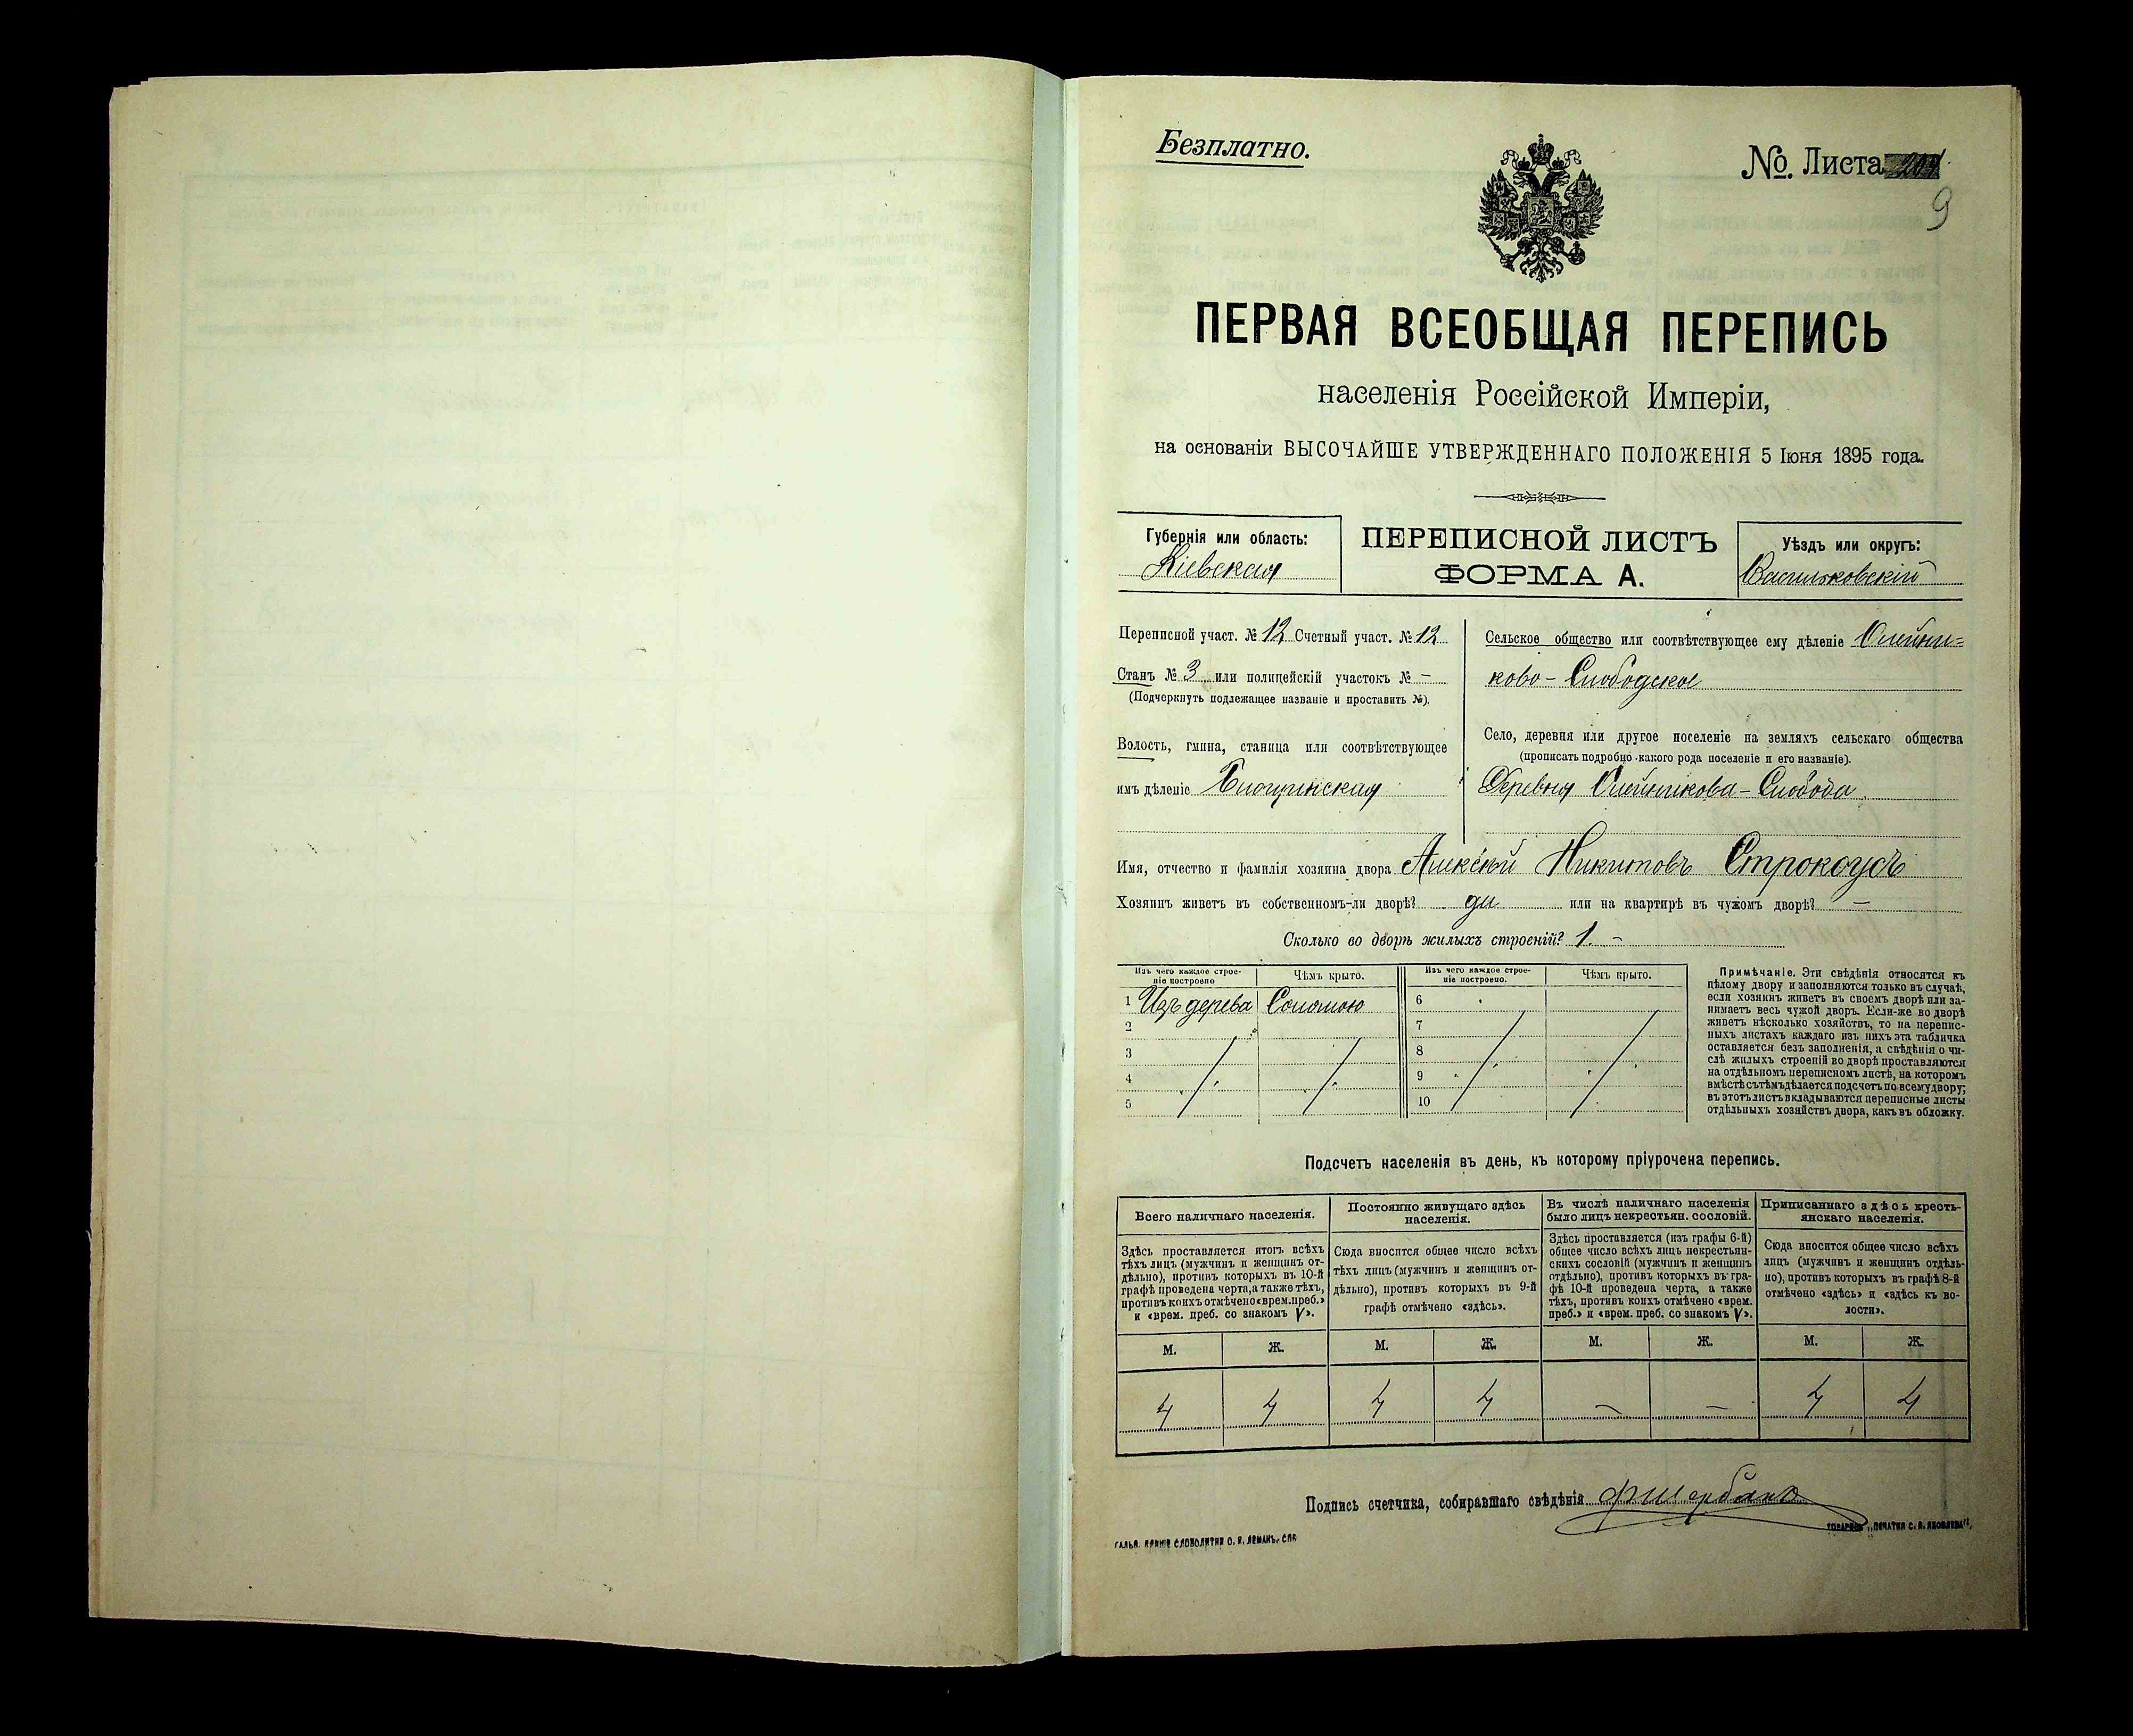 Безплатно.
№. Листа
9
ПЕРВАЯ ВСЕОБЩАЯ ПЕРЕПИСЬ
населенія Россійской Имперіи,
на основаніи ВЫСОЧАЙШЕ УТВЕРЖДЕННАГО ПОЛОЖЕНІЯ 5 Іюня 1895 года.
Губернія или область:
Кіевская
ПЕРЕПИСНОЙ ЛИСТЪ
ФОРМА А.
Уѣздъ или округъ:
Васильковскій
Переписной участ. № 12 Счетный участ. № 12
Станъ № 3 или полицейскій участокъ № –
(Подчеркнуть подлежащее названіе и проставить №).
Волость, гмина, станица или соотвѣтствующее
имъ дѣленіе
Сельское общество или соотвѣтствующее ему дѣленіе Олейни=
ково-Слободское
Село, деревня или другое поселеніе на земляхъ сельскаго общества
(прописать подробно какого рода поселеніе и его названіе).
Деревня Олейникова-Слобода
Имя, отчество и фамилія хозяина двора Алексѣй Никитовъ
Хозяинъ живетъ въ собственномъ-ли дворѣ? да или на квартирѣ въ чужомъ дворѣ? –
Сколько во дворѣ жилыхъ строеній? 1. –
Изъ чего каждое строе-
ніе построено
Чѣмъ крыто.
Изъ чего каждое строе-
ніе построено.
Чѣмъ крыто.
1 Изъ дерева Соломою 6
2 7
3 8
4 9
5 10
Примѣчаніе. Эти свѣдѣнія относятся къ
цѣлому двору и заполняются только въ случаѣ,
если хозяинъ живетъ въ своемъ дворѣ или за-
нимаетъ весь чужой дворъ. Если-же во дворѣ
живетъ нѣсколько хозяйствъ, то на перепис-
ныхъ листахъ каждаго изъ нихъ эта табличка
оставляется безъ заполненія, а свѣдѣнія о чи-
слѣ жилыхъ строеній во дворѣ проставляются
на отдѣльномъ переписномъ листѣ, на которомъ
вмѣстѣ съ тѣмъ дѣлается подсчетъ по всему двору;
въ этотъ листъ вкладываются переписные листы
отдѣльныхъ хозяйствъ двора, какъ въ обложку.
Подсчетъ населенія въ день, къ которому пріурочена перепись.
Всего наличнаго населенія.
Здѣсь проставляется итогъ всѣхъ
тѣхъ лицъ (мужчинъ и женщинъ от-
дѣльно), противъ которыхъ въ 10-й
графѣ проведена черта, а также тѣхъ,
противъ коихъ отмѣчено «врем. преб.»
и «врем. преб. со знакомъ V».
Постоянно живущаго здѣсь
населенія.
Сюда вносится общее число всѣхъ
тѣхъ лицъ (мужчинъ и женщинъ от-
дѣльно), противъ которыхъ въ 9-й
графѣ отмѣчено «здѣсь».
Въ числѣ наличнаго населенія
было лицъ некрестьян. сословій.
Здѣсь проставляется (изъ графы 6-й)
общее число всѣхъ лицъ некрестьян-
скихъ сословій (мужчинъ и женщинъ
отдѣльно), противъ которыхъ въ гра-
фѣ 10-й проведена черта, а также
тѣхъ, противъ коихъ отмѣчено «врем.
преб.» и «врем. преб. со знакомъ V».
Приписаннаго здѣсь кресть-
янскаго населенія.
Сюда вносится общее число всѣхъ
лицъ (мужчинъ и женщинъ отдѣль-
но), противъ которыхъ въ графѣ 8-й
отмѣчено «здѣсь» и «здѣсь къ во-
лости».
М. Ж. М. Ж. М. Ж. М. Ж.
4 4 4 4 – – 4 4
Подпись счетчика, собиравшаго свѣдѣнія
СЛОВОЛИТНИ О. И. ЛЕМАНЪ, СПБ
ПЕЧАТНИ С. П. ЯКОВЛЕВА"